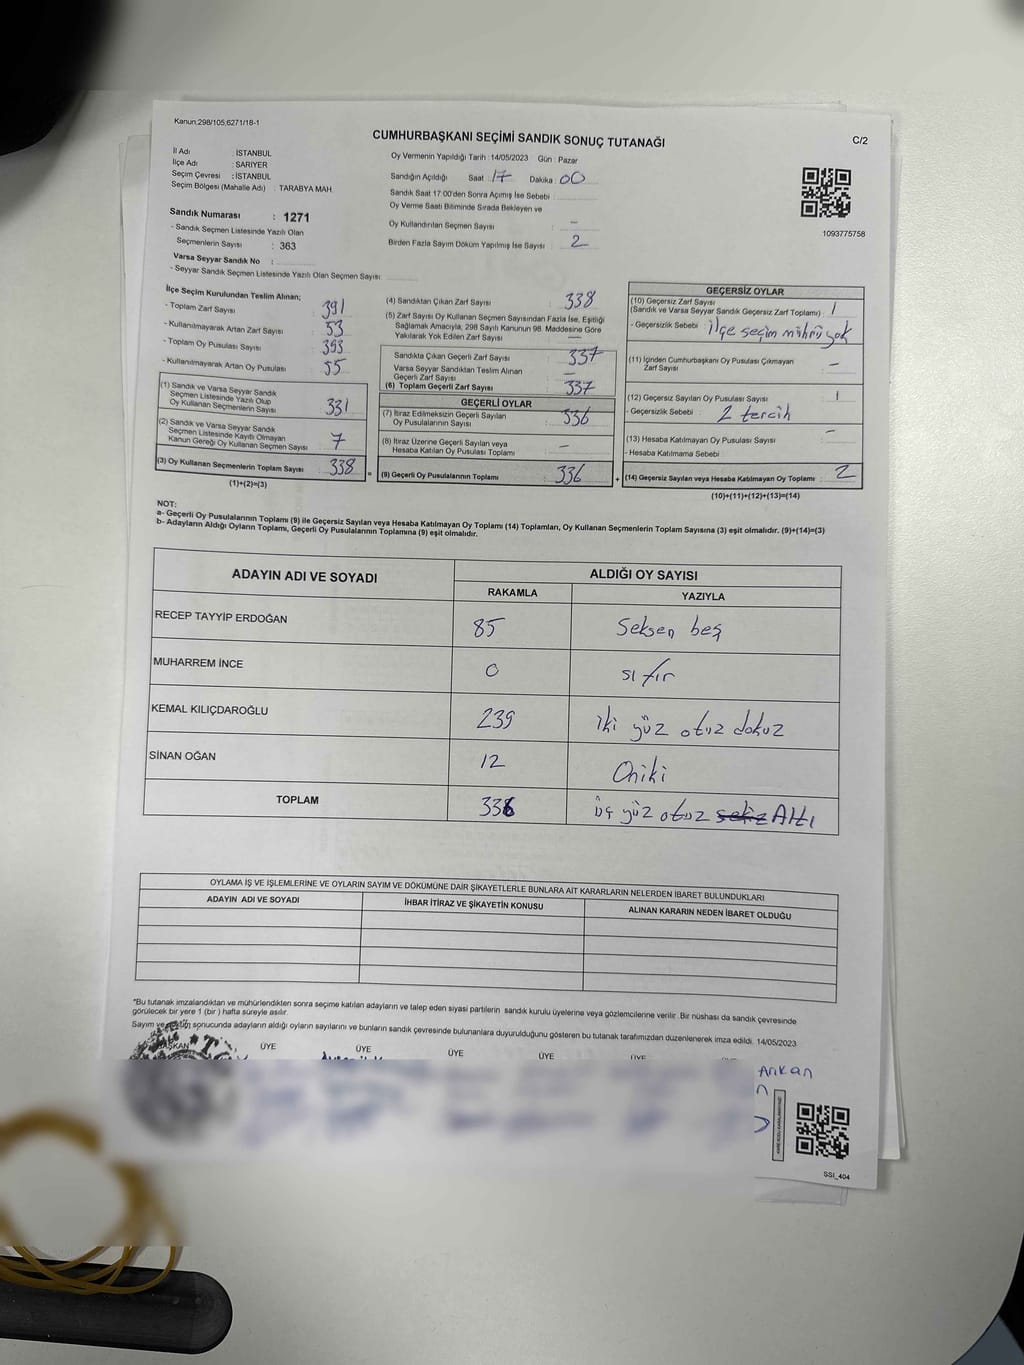 Kanun,298/105,6271/18-1
CUMHURBAŞKANI SEÇİMİ SANDIK SONUÇ TUTANAĞI
C/2
İl Adı : İSTANBUL
İlçe Adı : SARIYER
Seçim Çevresi : İSTANBUL
Seçim Bölgesi (Mahalle Adı) : TARABYA MAH.
Oy Vermenin Yapıldığı Tarih : 14/05/2023 Gün : Pazar
Sandığın Açıldığı Saat : 17 Dakika : 00
Sandık Saat 17:00'den Sonra Açımış İse Sebebi :
Oy Verme Saati Bitiminde Sırada Bekleyen ve
Oy Kullandırılan Seçmen Sayısı : -
Birden Fazla Sayım Döküm Yapılmış İse Sayısı : 2
1093775758
Sandık Numarası : 1271
- Sandık Seçmen Listesinde Yazılı Olan
Seçmenlerin Sayısı : 363
Varsa Seyyar Sandık No :
- Seyyar Sandık Seçmen Listesinde Yazılı Olan Seçmen Sayısı:
İlçe Seçim Kurulundan Teslim Alınan;
- Toplam Zarf Sayısı : 391
- Kullanılmayarak Artan Zarf Sayısı : 53
- Toplam Oy Pusulası Sayısı : 393
- Kullanılmayarak Artan Oy Pusulası : 55
(1) Sandık ve Varsa Seyyar Sandık
Seçmen Listesinde Yazılı Olup
Oy Kullanan Seçmenlerin Sayısı : 331
(2) Sandık ve Varsa Seyyar Sandık
Seçmen Listesinde Kayıtlı Olmayan
Kanun Gereği Oy Kullanan Seçmen Sayısı : 7
(3) Oy Kullanan Seçmenlerin Toplam Sayısı : 338
(1)+(2)=(3)
(4) Sandıktan Çıkan Zarf Sayısı : 338
(5) Zarf Sayısı Oy Kullanan Seçmen Sayısından Fazla İse, Eşitliği
Sağlamak Amacıyla, 298 Sayılı Kanunun 98. Maddesine Göre
Yakılarak Yok Edilen Zarf Sayısı : -
Sandıkta Çıkan Geçerli Zarf Sayısı : 337
Varsa Seyyar Sandıktan Teslim Alınan
Geçerli Zarf Sayısı : -
(6) Toplam Geçerli Zarf Sayısı : 337
GEÇERLİ OYLAR
(7) İtiraz Edilmeksizin Geçerli Sayılan
Oy Pusulalarının Sayısı : 336
(8) İtiraz Üzerine Geçerli Sayılan veya
Hesaba Katılan Oy Pusulası Toplamı : -
= (9) Geçerli Oy Pusulalarının Toplamı : 336
GEÇERSİZ OYLAR
(10) Geçersiz Zarf Sayısı
(Sandık ve Varsa Seyyar Sandık Geçersiz Zarf Toplamı) : 1
- Geçersizlik Sebebi : ilçe seçim mührü yok
(11) İçinden Cumhurbaşkanı Oy Pusulası Çıkmayan
Zarf Sayısı : -
(12) Geçersiz Sayılan Oy Pusulası Sayısı : 1
- Geçersizlik Sebebi : 2 tercih
(13) Hesaba Katılmayan Oy Pusulası Sayısı : -
- Hesaba Katılmama Sebebi
+ (14) Geçersiz Sayılan veya Hesaba Katılmayan Oy Toplamı : 2
(10)+(11)+(12)+(13)=(14)
NOT:
a- Geçerli Oy Pusulalarının Toplamı (9) ile Geçersiz Sayılan veya Hesaba Katılmayan Oy Toplamı (14) Toplamları, Oy Kullanan Seçmenlerin Toplam Sayısına (3) eşit olmalıdır. (9)+(14)=(3)
b- Adayların Aldığı Oyların Toplamı, Geçerli Oy Pusulalarının Toplamına (9) eşit olmalıdır.
ADAYIN ADI VE SOYADI ALDIĞI OY SAYISI
RAKAMLA YAZIYLA
RECEP TAYYİP ERDOĞAN 85 Seksen beş
MUHARREM İNCE 0 sıfır
KEMAL KILIÇDAROĞLU 239 iki yüz otuz dokuz
SİNAN OĞAN 12 Oniki
TOPLAM 336 üç yüz otuz sekiz Altı
OYLAMA İŞ VE İŞLEMLERİNE VE OYLARIN SAYIM VE DÖKÜMÜNE DAİR ŞİKAYETLERLE BUNLARA AİT KARARLARIN NELERDEN İBARET BULUNDUKLARI
ADAYIN ADI VE SOYADI İHBAR İTİRAZ VE ŞİKAYETİN KONUSU ALINAN KARARIN NEDEN İBARET OLDUĞU
*Bu tutanak imzalandıktan ve mühürlendikten sonra seçime katılan adayların ve talep eden siyasi partilerin sandık kurulu üyelerine veya gözlemcilerine verilir .Bir nüshası da sandık çevresinde
görülecek bir yere 1 (bir ) hafta süreyle asılır.
Sayım ve döküm sonucunda adayların aldığı oyların sayılarını ve bunların sandık çevresinde bulunanlara duyurulduğunu gösteren bu tutanak tarafımızdan düzenlenerek imza edildi. 14/05/2023
BAŞKAN ÜYE ÜYE ÜYE ÜYE ÜYE
Arıkan
SSI_404